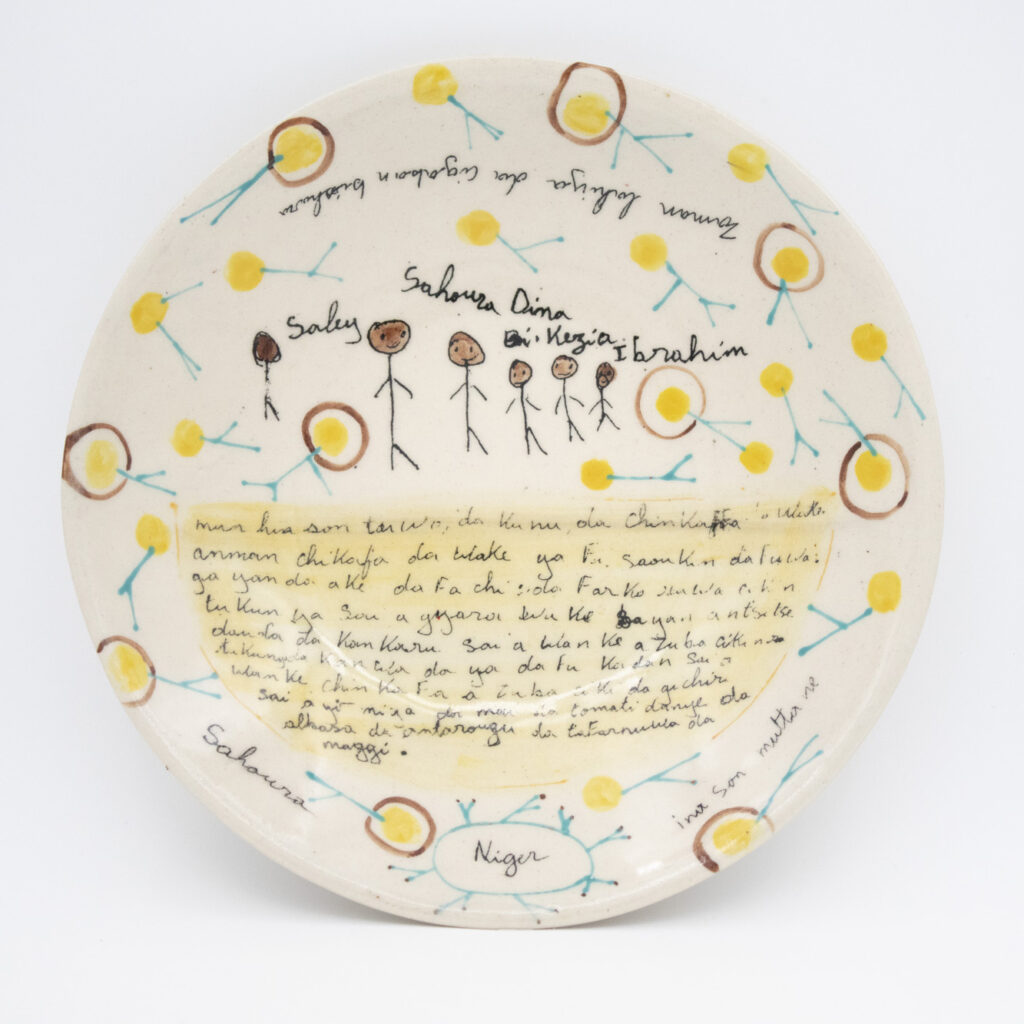 Zaman lahiya da cigaban
Sahoura Dina
Saley
Kezia
Ibrahim
mun hua son tuwo, da Kunu, da Chinkaffa
anman chikafa da wake ya Fi. saukin dafuwa.
ga yanda ake da Fa chi : da Farko
tukunya sai a gyara wuke ayan
da da Kankaru sai a wanke a zuba cikin
tukunya kan wuta da ya da Fu Kadan sai a
wanke chinkaFa a zuba ciki da gichiri
sai a yi miya da mai da tomati danye da
albasa da antarougu da tafarnuwa da
maggi.
Sahoura
ina son mutta ne
Niger